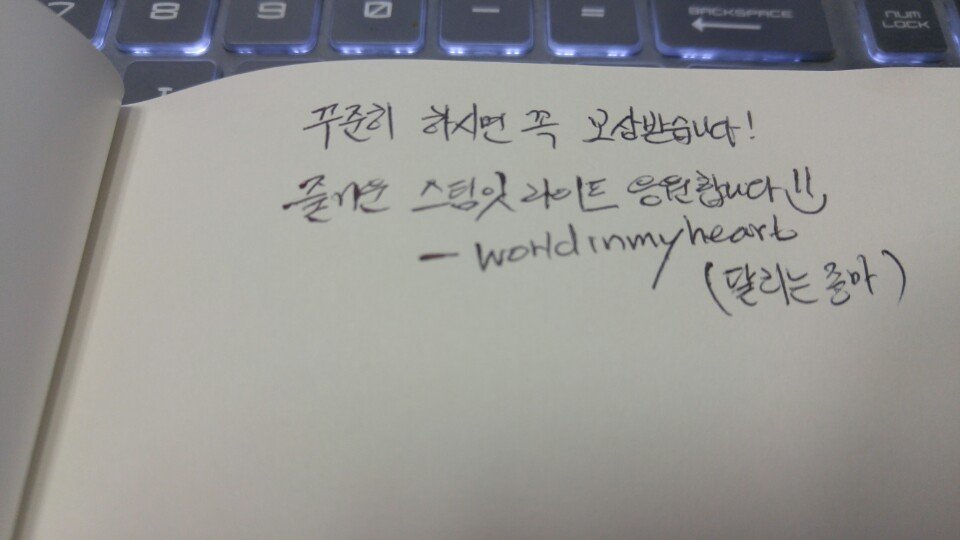 7 8 9 0 - = BACKSPACE NUM LOCK
꾸준히 하시면 꼭 보상받습니다!
즐거운 스팀잇 라이트 응원합니다!!
- worldinmyheart
(달리는 줄마)